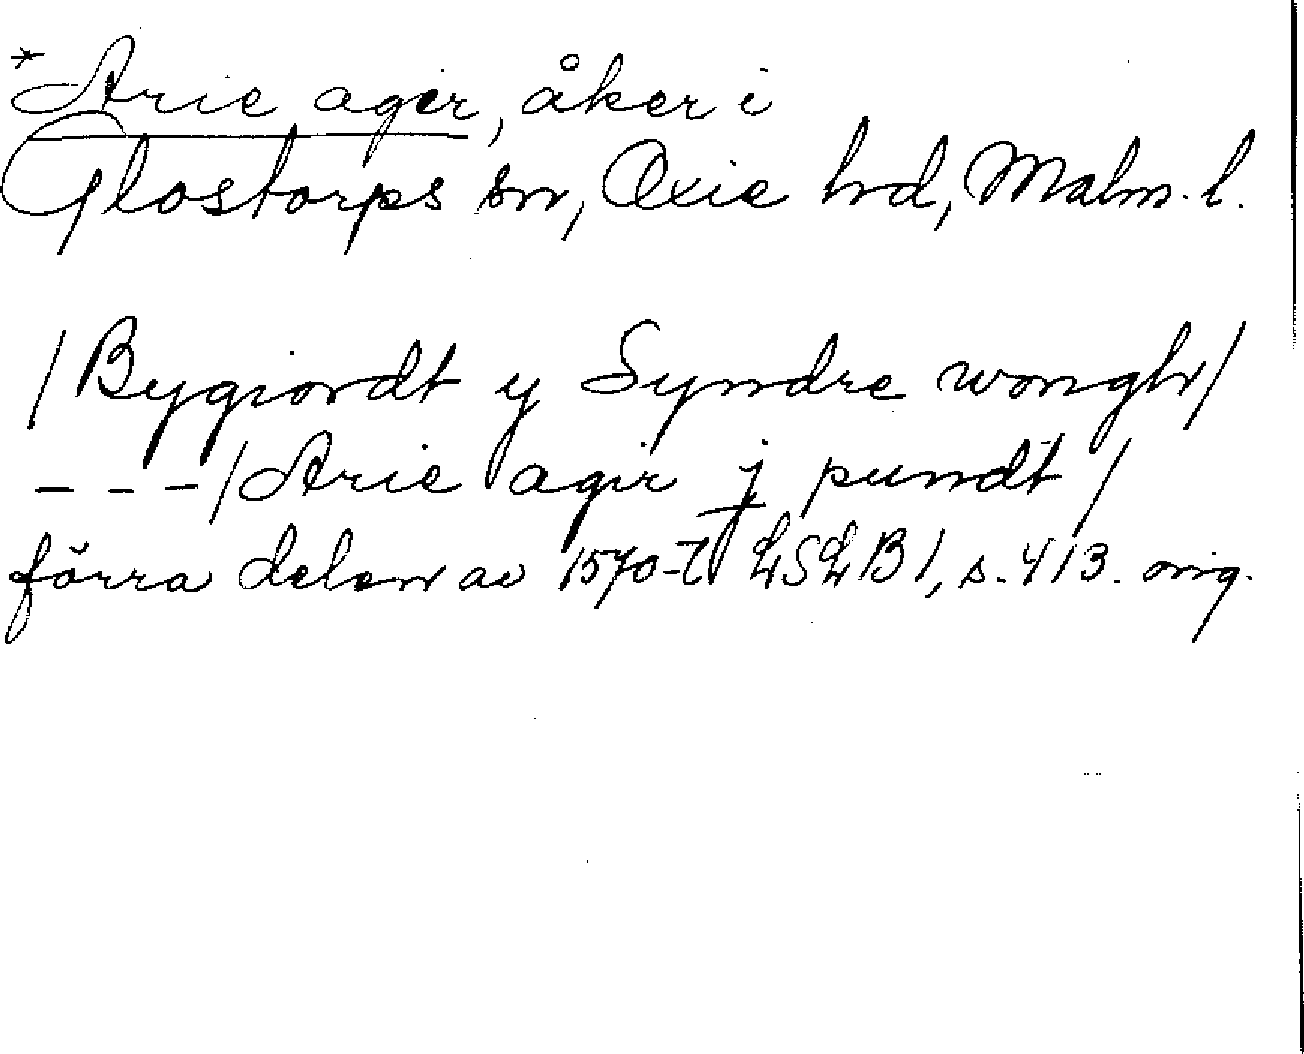 *Arie ager, åker i
Glostorps sn, Oxie hd, Malm. l.
/ Bygiordt y Syndre wongh /
- - - / Arie agir j pundt /
förra delen av 1570-t LSLB 1, s. 413. orig.